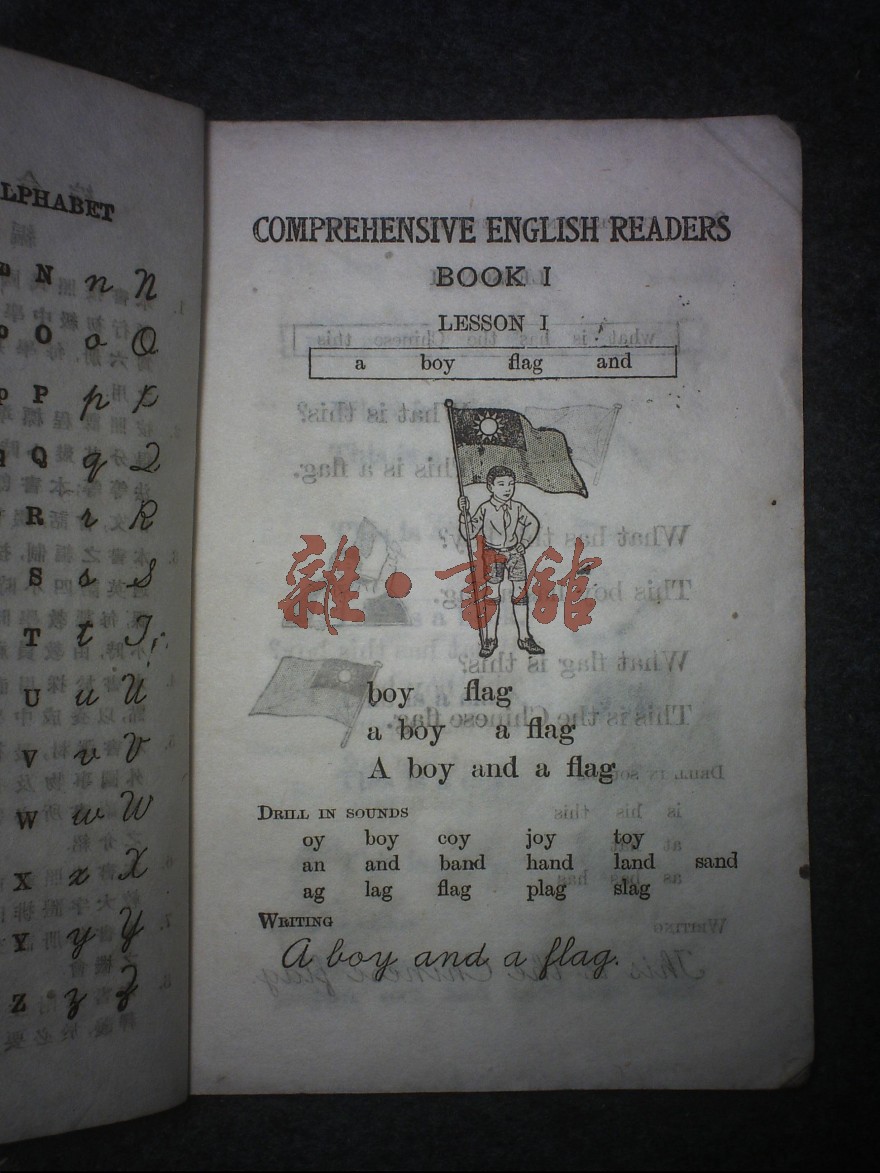 ALPHABET
N n N
O o O
P p P
Q q Q
R r R
S s S
T t T
U u U
V v V
W w W
X x X
Y y Y
Z z Z
COMPREHENSIVE ENGLISH READERS
BOOK I
LESSON I
a boy flag and
雜·書館
boy flag
a boy a flag
A boy and a flag
DRILL IN SOUNDS
oy boy coy joy toy
an and band hand land sand
ag lag flag plag slag
WRITING
A boy and a flag.